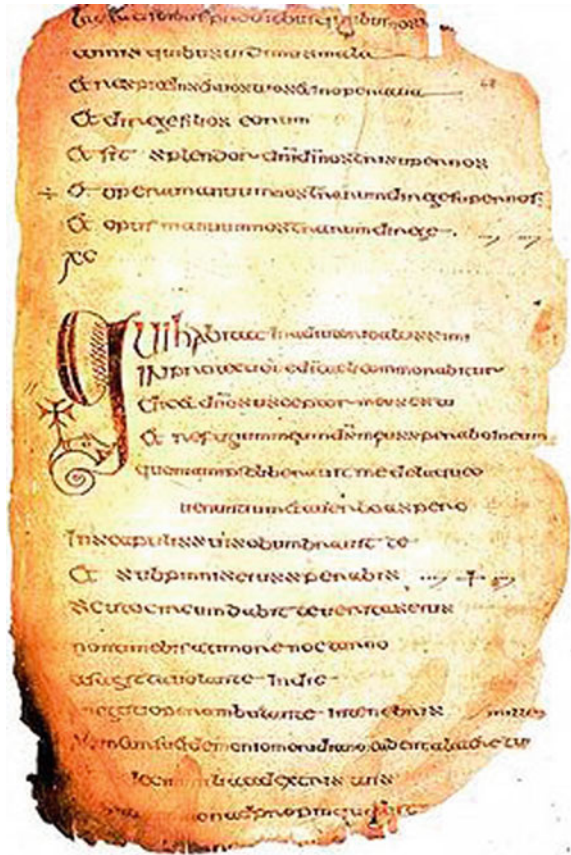 annis quibus uidimus mala
Et respice in seruos tuos et in opera tua
Et dirige filios eorum
Et sit splendor dni di nostri super nos
÷ Et opera manuum nostrarum dirige super nos:
Et opus manuum nostrarum dirige
xc
Qui habitat in adiutorio altissimi
in protectione di caeli commorabitur
dicet dno susceptor meus es tu
Et refugium meum ds meus sperabo in eum
quoniam ipse liberauit me de laqueo
uenantium et a uerbo aspero
In scapulis suis obumbrauit te
Et sub pinnis eius sperabis
Scuto circumdabit te ueritas eius
non timebis a timore nocturno
a sagitta uolante in die
a negotio perambulante in tenebris
demonio meridiano cadent a latere tuo
decem milia a dextris tuis
non adpropinquabit